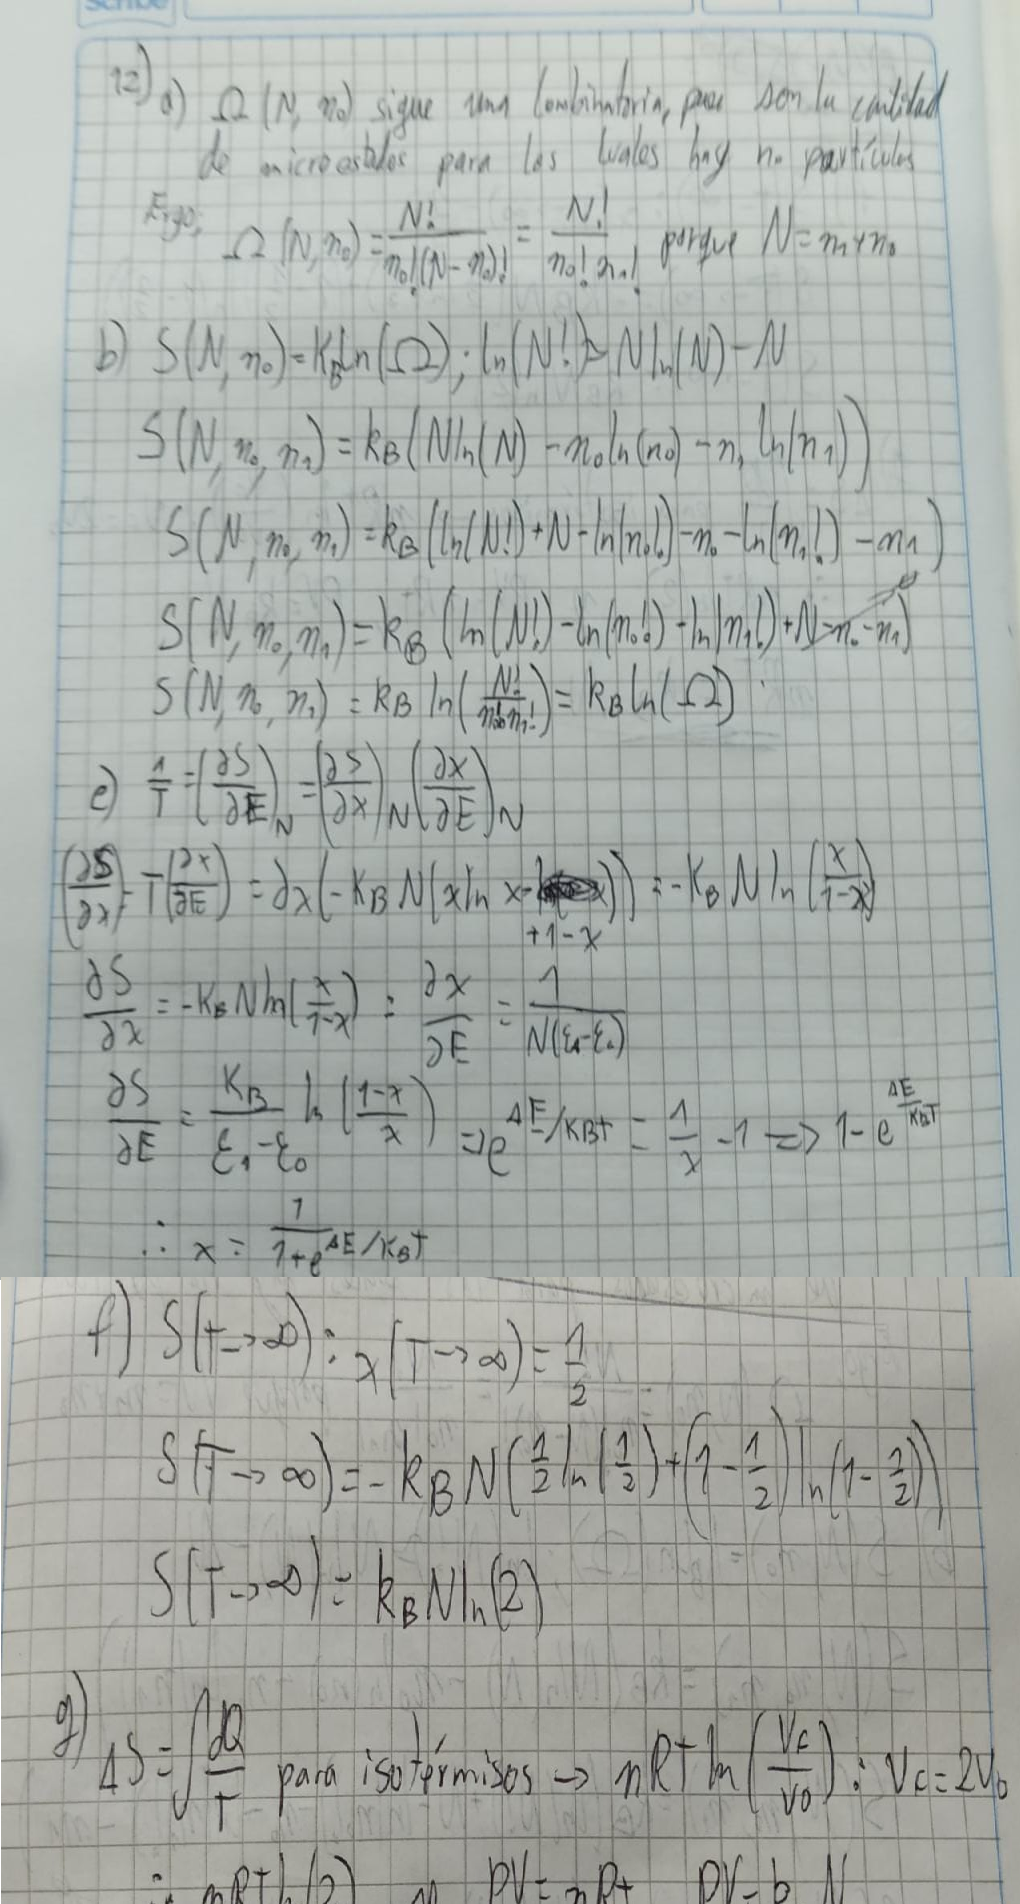 scribe
12) a) Ω(N, n₀) sigue una combinatoria, pues son la cantidad
de microestados para los cuales hay n₀ partículas
Ergo, Ω(N, n₀) = N!/(n₀!(N - n₀)!) = N!/(n₀! n₁!) porque N = n₁ + n₀
b) S(N, n₀) = K_B ln(Ω); ln(N!) ≃ N ln(N) - N
S(N, n₀, n₁) = k_B(N ln(N) - n₀ ln(n₀) - n₁ ln(n₁))
S(N, n₀, n₁) = k_B(ln(N!) + N - ln(n₀!) - n₀ - ln(n₁!) - n₁)
S(N, n₀, n₁) = k_B(ln(N!) - ln(n₀!) - ln(n₁!) + N - n₀ - n₁)
S(N, n₀, n₁) = k_B ln(N!/(n₀! n₁!)) = k_B ln(Ω)
e) 1/T = (∂S/∂E)_N = (∂S/∂x)_N (∂x/∂E)_N
(∂S/∂x) - T(∂x/∂E) = ∂x(-K_B N(x ln x + 1 - x)) = -K_B N ln(x/(1-x))
∂S/∂x = -K_B N ln(x/(1-x)) : ∂x/∂E = 1/(N(ε₁-ε₀))
∂S/∂E = K_B/(ε₁-ε₀) ln((1-x)/x) => e^(ΔE/K_BT) = 1/x - 1 => 1 - e^(ΔE/K_BT)
∴ x = 1/(1+e^(ΔE/K_BT))
f) S(T→∞) : x(T→∞) = 1/2
S(T→∞) = -k_B N(1/2 ln(1/2) + (1 - 1/2) ln(1 - 1/2))
S(T→∞) = k_B N ln(2)
g) ΔS = ∫ dQ/T para isotérmisos → nRT ln(Vc/V₀) : Vc = 2V₀